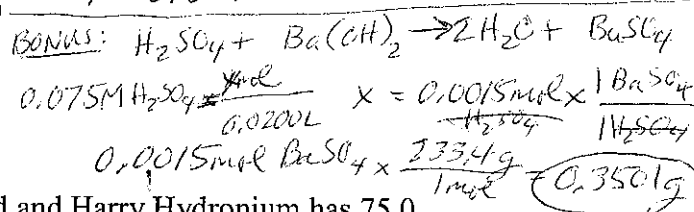 BONUS: H₂SO₄ + Ba(OH)₂ → 2H₂O + BaSO₄
0.075M H₂SO₄ = x mol / 0.0200L x = 0.0015 mol H₂SO₄ × 1 BaSO₄ / 1 H₂SO₄
0.0015 mol BaSO₄ × 233.4 g / 1 mol = 0.3501g
d and Harry Hydronium has 75.0